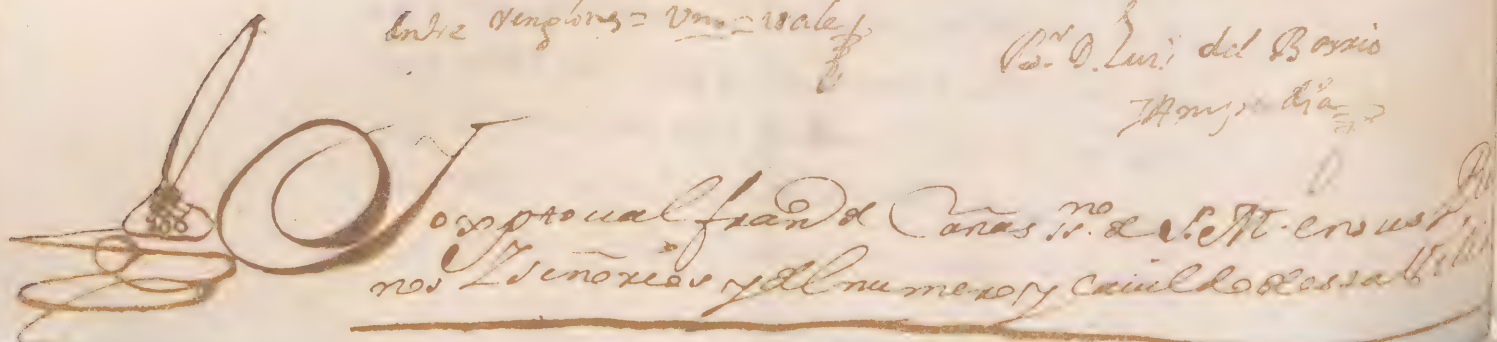 Entre renglones = Un = vale
D. Luis del Barrio
dia
Yo xptoual fran de Cañas ss.no de S. M. en sus
nos Y Señorios y del numero y Cauildo de esta Villa